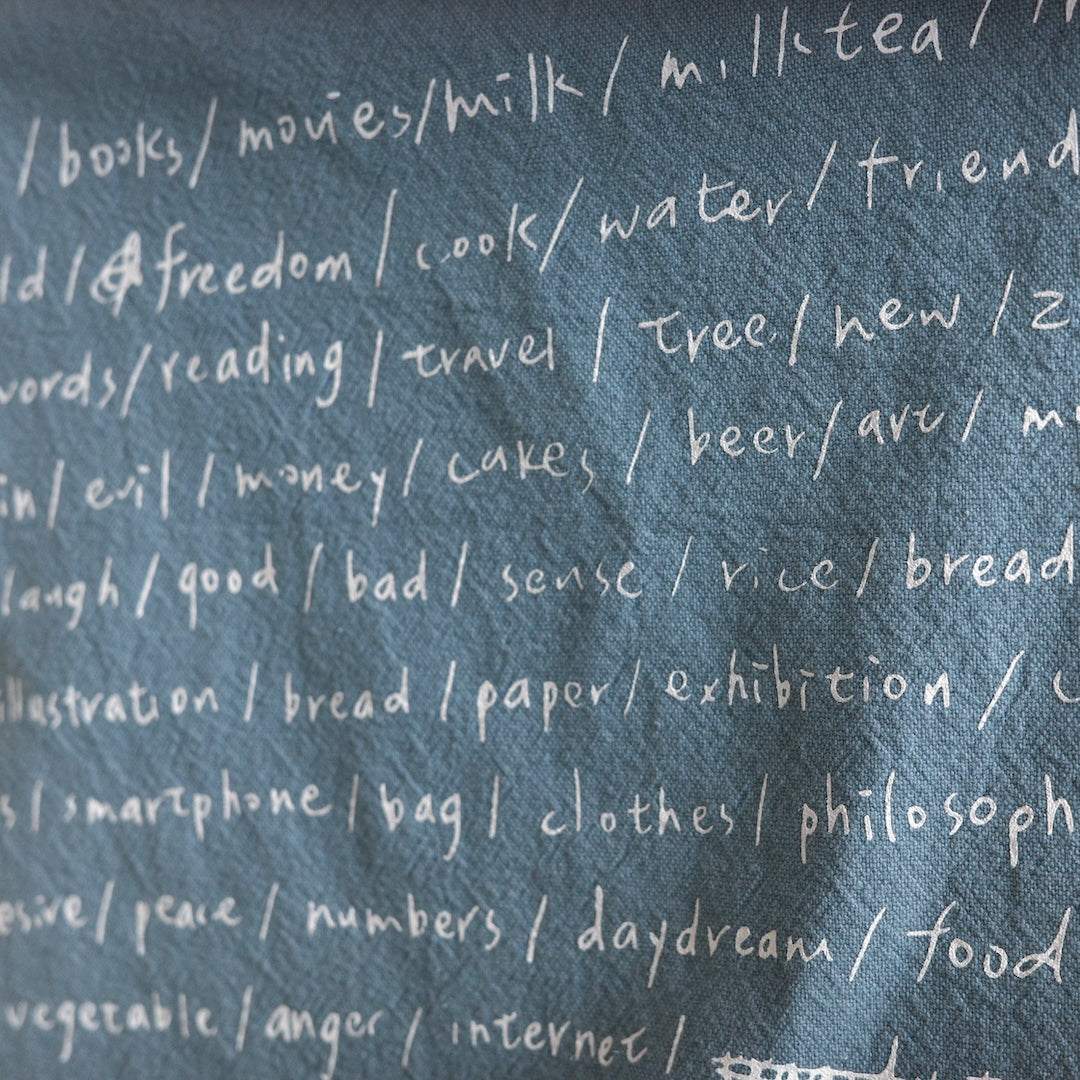 / books / movies / milk / milk tea /
ld / freedom / cook / water / friend
words / reading / travel / tree / new /
in / evil / money / cakes / beer / art /
laugh / good / bad / sense / rice / bread
illustration / bread / paper / exhibition /
s / smartphone / bag / clothes / philosoph
esire / peace / numbers / daydream / food
vegetable / anger / internet /